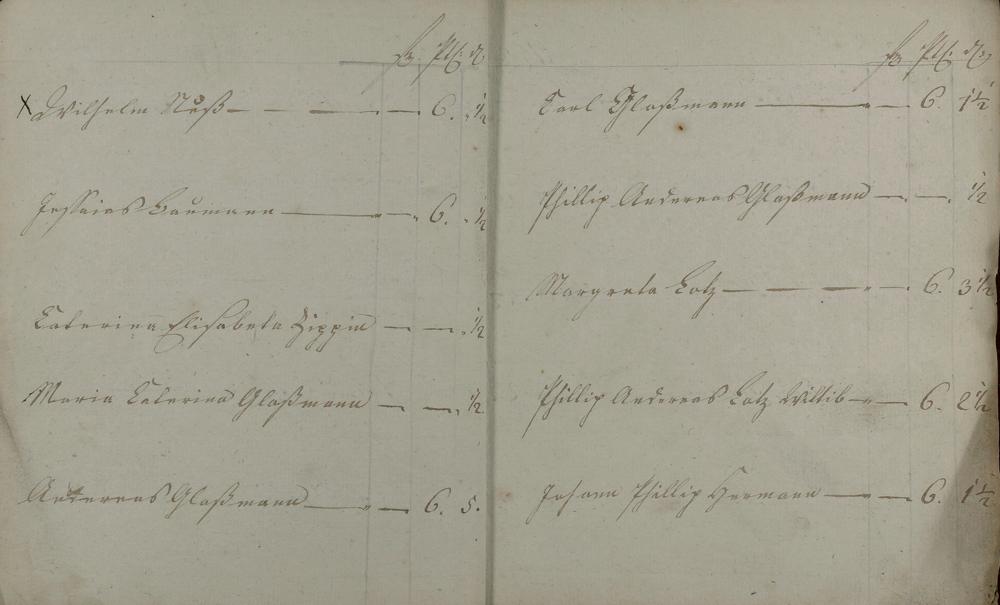 Wilhelm Nuß — — — 6. ½
Jessaias Baumann — — 6. ½
Caterina Elisabeta Zippin — — ½
Maria Caterina Glaßmann — — ½
Andereas Glaßmann — — 6. 5.
Carl Glaßmann — — 6. 1½
Phillip Andereas Glaßmann — — ½
Margreta Lotz — — — 6. 3½
Phillip Andereas Lotz — — 6. 2½
Johann Phillip Hermann — — 6. 1½